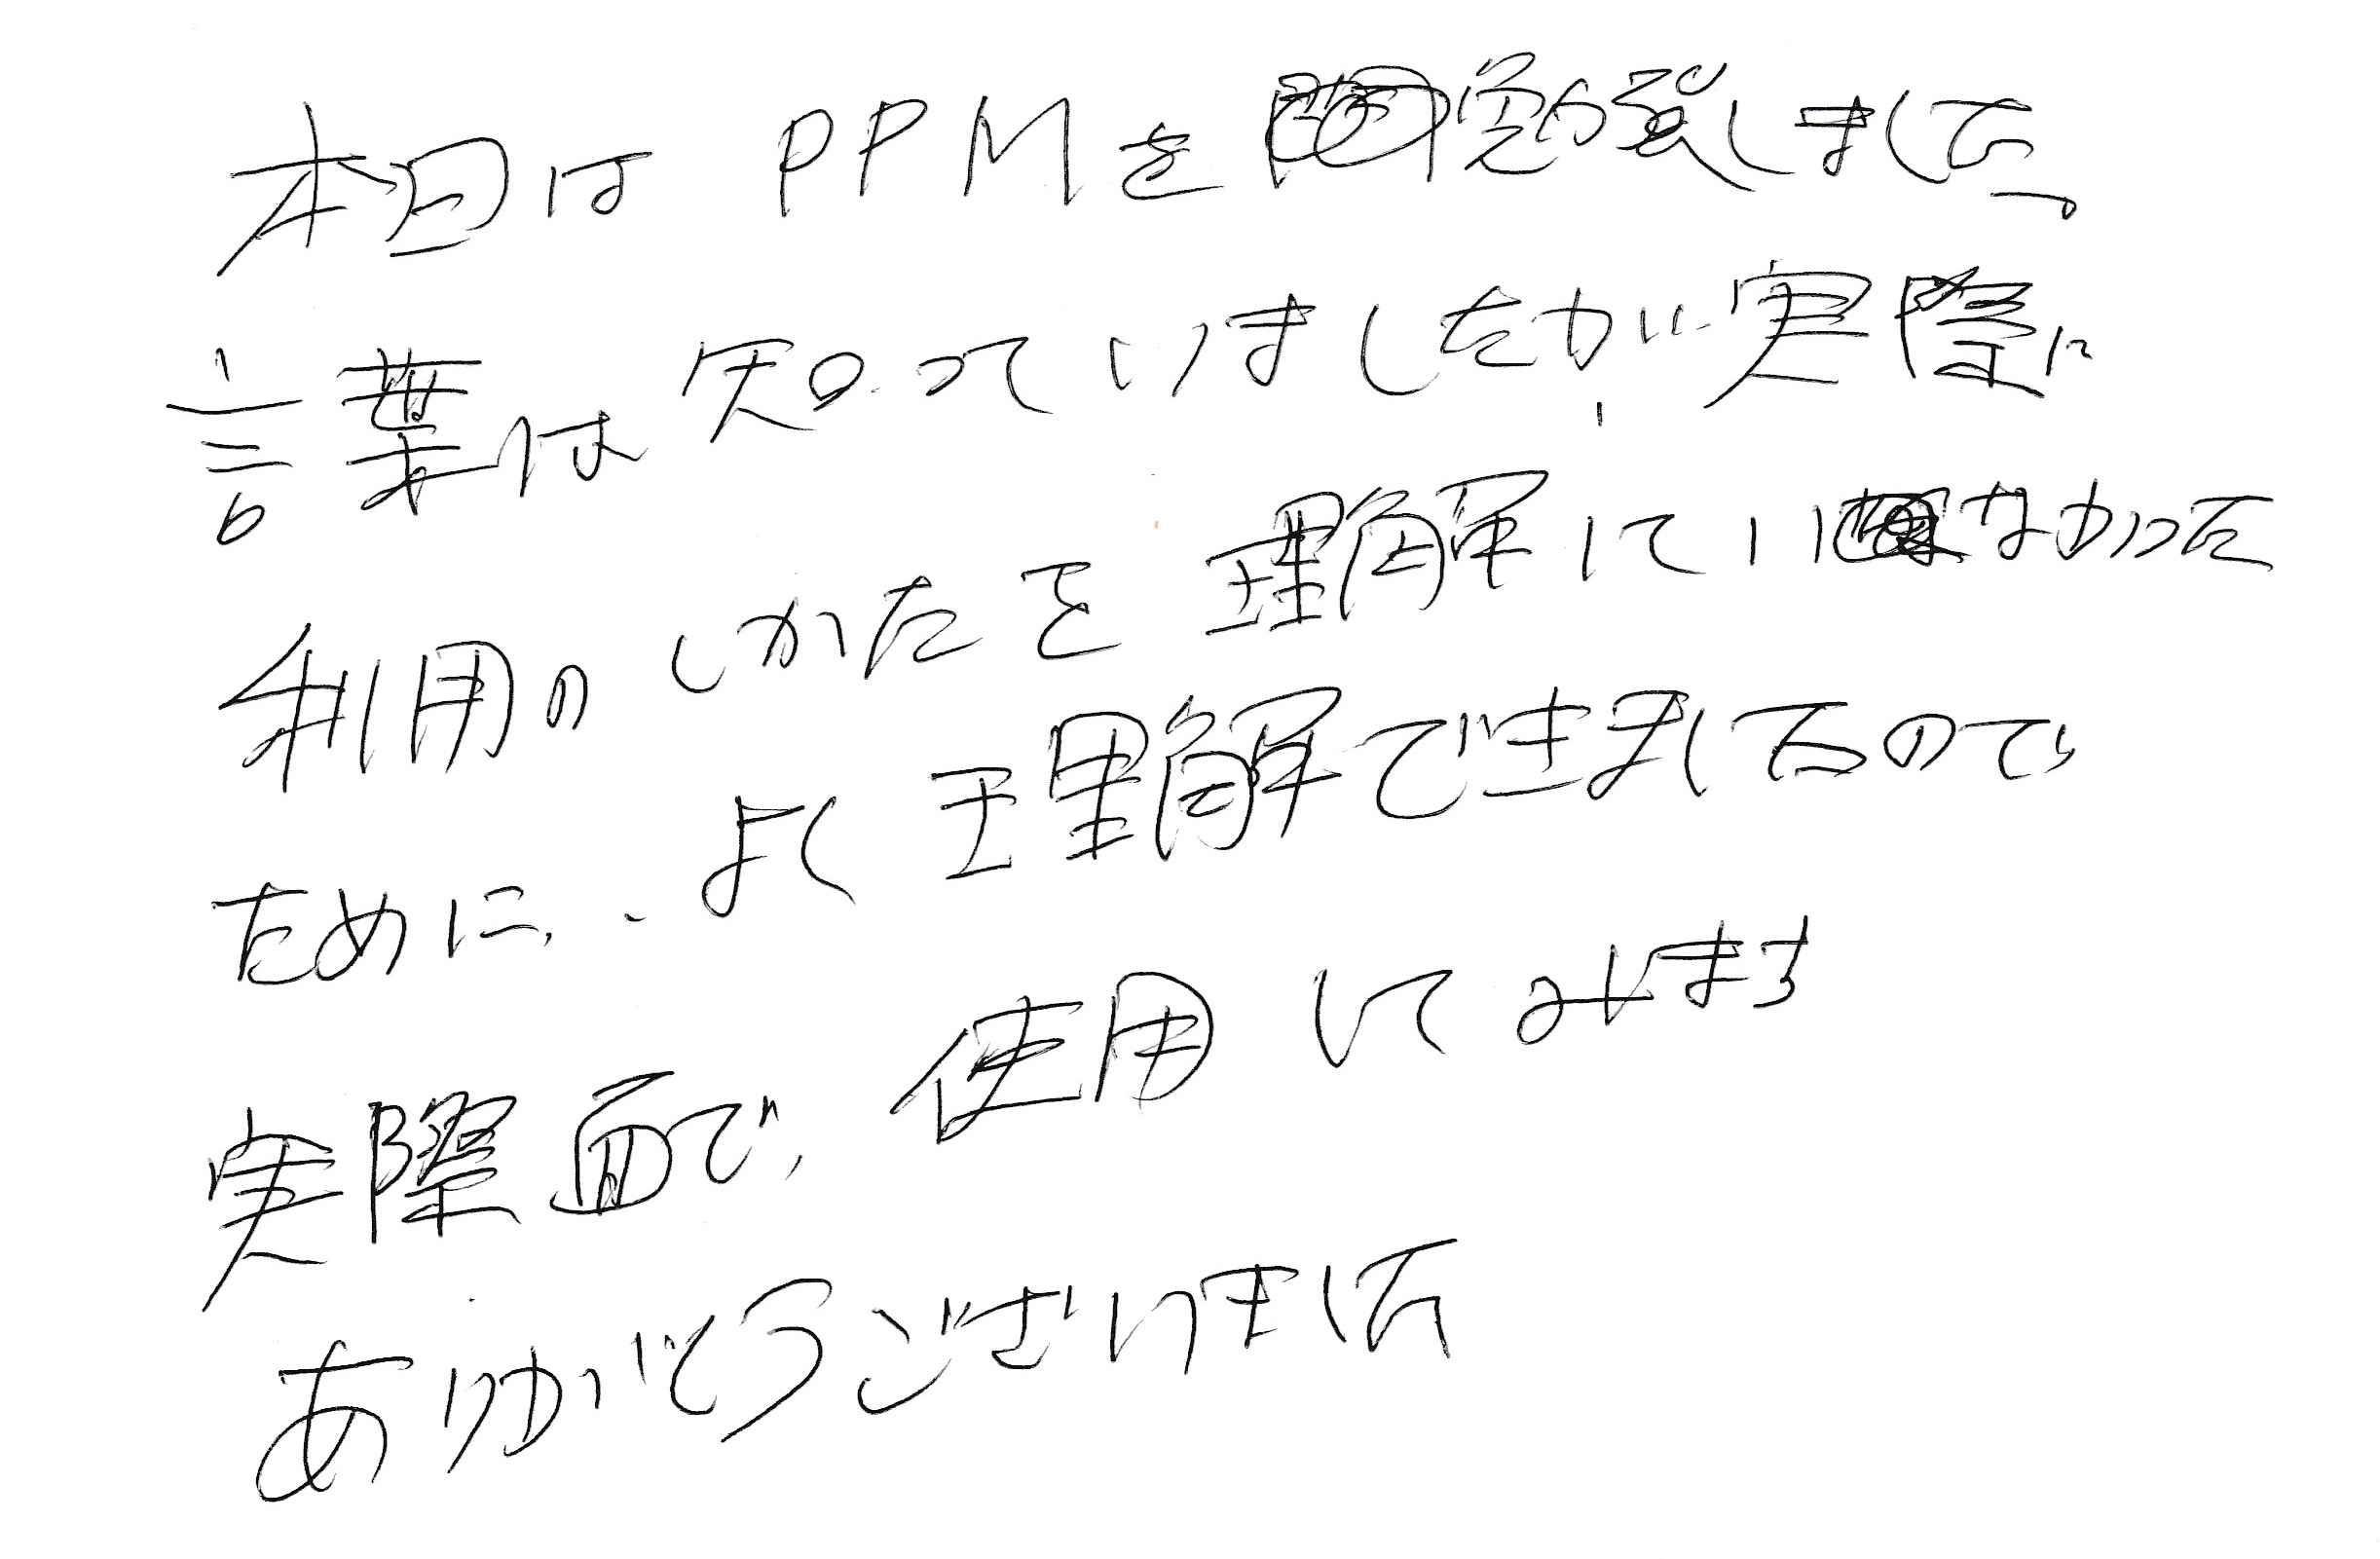 本日は PPMを勉強しました。
言葉は知っていましたが、実際に
利用のしかたを理解していなかった
ために、よく理解できましたので
実際面で、使用してみます
ありがとうございました